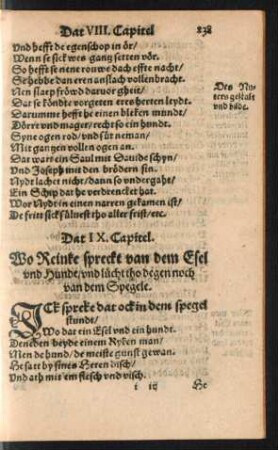 Dat VIII. Capitel 238
Vnd hefft de egenschop in ör/
Wenn se sick wes gantz setten vör.
So hefft se nene rouwe dach effte nacht/
Se hebbe dan eren anslach vollenbracht.
Nen slaep fröwd daruor gheit/
Dat se köndte vorgeten eres herten leydt.
Darumme hefft he einen bleken mundt/
Dörrr vnd mager/recht so ein hundt.
Syne ogen rod/vnd süt neman/
Mit gantzen vollen ogen an.
Dat wart ein Saul mit Dauide schyn/
Vnd Joseph mit den brödern sin.
Nydt lachet nicht/dann so vndergaht/
Ein Schip dat he verdrencket hat.
Wor Nydt in einen narren gekamen ist/
De fritt sick sülnest tho aller frist/etc.
Des Ny-
ters gestalt
vnd hade.
Dat IX. Capitel.
Wo Reinke spreckt van dem Esel
vnd Hundt/vnd lücht tho degen noch
van dem Spegele.
ICk spreke dat ock in dem spegel
stundt/
Wo dat ein Esel vnd ein hundt.
Deneden beyde einem Ryken man/
Men de hund/de meiste gunst gewan.
He satt by sines Heren disch/
Vnd ath mit em flesch vnd visch.
He